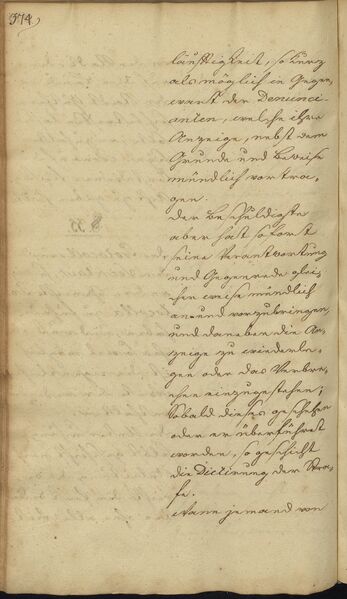 374.
läufftigkeit, so kurz
als möglich in Gegen-
wart der Denunci-
anten, welche ihre
Anzeige, nebst dem
Grunde und Beweise
mündlich vortra-
gen.
Der Beschuldigte
aber hat sofort
seine Verantwortung
und Gegenrede glei-
cher weise mündlich
an und vorzubringen,
und daneben die An-
zeige zu wiederle-
gen oder das Verbre-
chen einzugestehen;
Sobald dieses geschehen
oder er überführet
worden, so geschicht
die Dictirung der Stra-
fe.
Wann jemand von